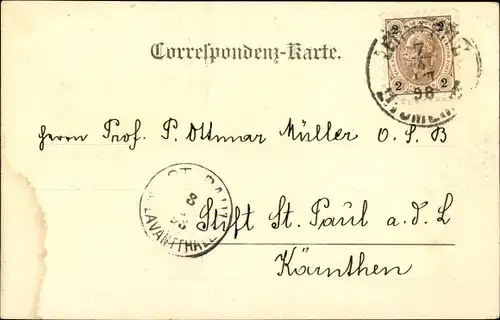 Correspondenz-Karte.
2 2
2 2
98
Herrn Prof. P. Ottmar Müller O. S. B
ST. PAUL
8
98
LAVANTTHALE
Stift St. Paul a. d. L
Kärnthen